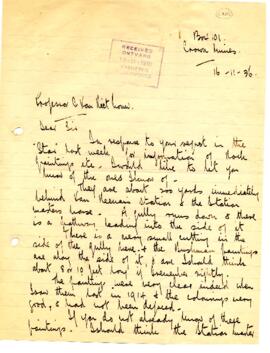 Box 101.
Crown Mines.
16-11-36.
RECEIVED
ONTVANG
Professor C Van Riet Lowe.
Dear Sir
In response to your request in the
"Star" last week for information of Rock
Paintings etc. I would like to let you
know of the ones I know of.
They are about 300 yards immediately
behind Van Reenen Station & the Station
masters house. A gully runs down & there
is a pathway leading into the side of it
& there is a very small cutting in the
side of the gully here. & the Bushman paintings
are along the side of it & are I should think
about 8 or 10 feet long if I remember rightly.
The paintings were very clear indeed when
I saw them last in 1914 & the colourings very
good, & had not been defaced.
If you do not already know of these
paintings. I should think the Station master